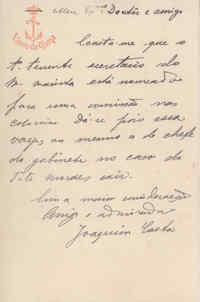 Meu Exmo Doutor e amigo
Consta-me que o
1º tenente secretario da
está nomeado
para uma comissão nas
colonias. Dá-se pois essa
vaga, ao mesmo a de chefe
do gabinete no caso do
Tte Moraes sair.
Com a maior consideração
Amigo e admirador
Joaquim Costa